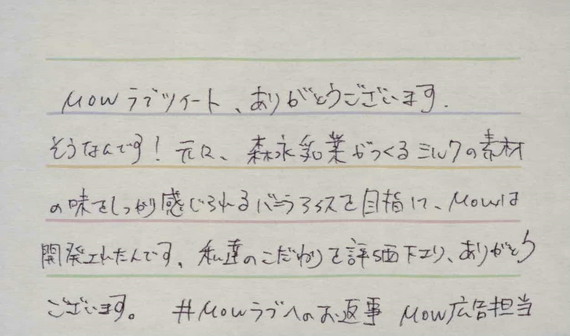 MOWラブツイート、ありがとうございます.
そうなんです！元々、森永乳業がつくるミルクの素材
の味をしっかり感じられるバニラアイスを目指して、MOWは
開発されたんです。私達のこだわりを評価下さり、ありがとう
ございます。 #MOWラブへのお返事 MOW広告担当